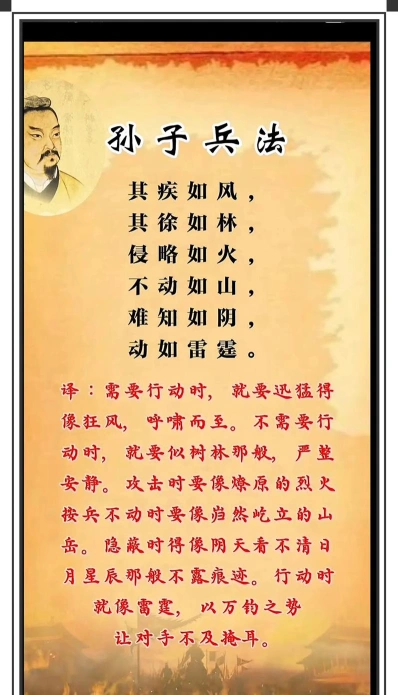 孙子兵法
其疾如风，
其徐如林，
侵略如火，
不动如山，
难知如阴，
动如雷霆。
译：需要行动时，就要迅猛得
像狂风，呼啸而至。不需要行
动时，就要似树林那般，严整
安静。攻击时要像燎原的烈火
按兵不动时要像岿然屹立的山
岳。隐蔽时得像阴天看不清日
月星辰那般不露痕迹。行动时
就像雷霆，以万钧之势
让对手不及掩耳。